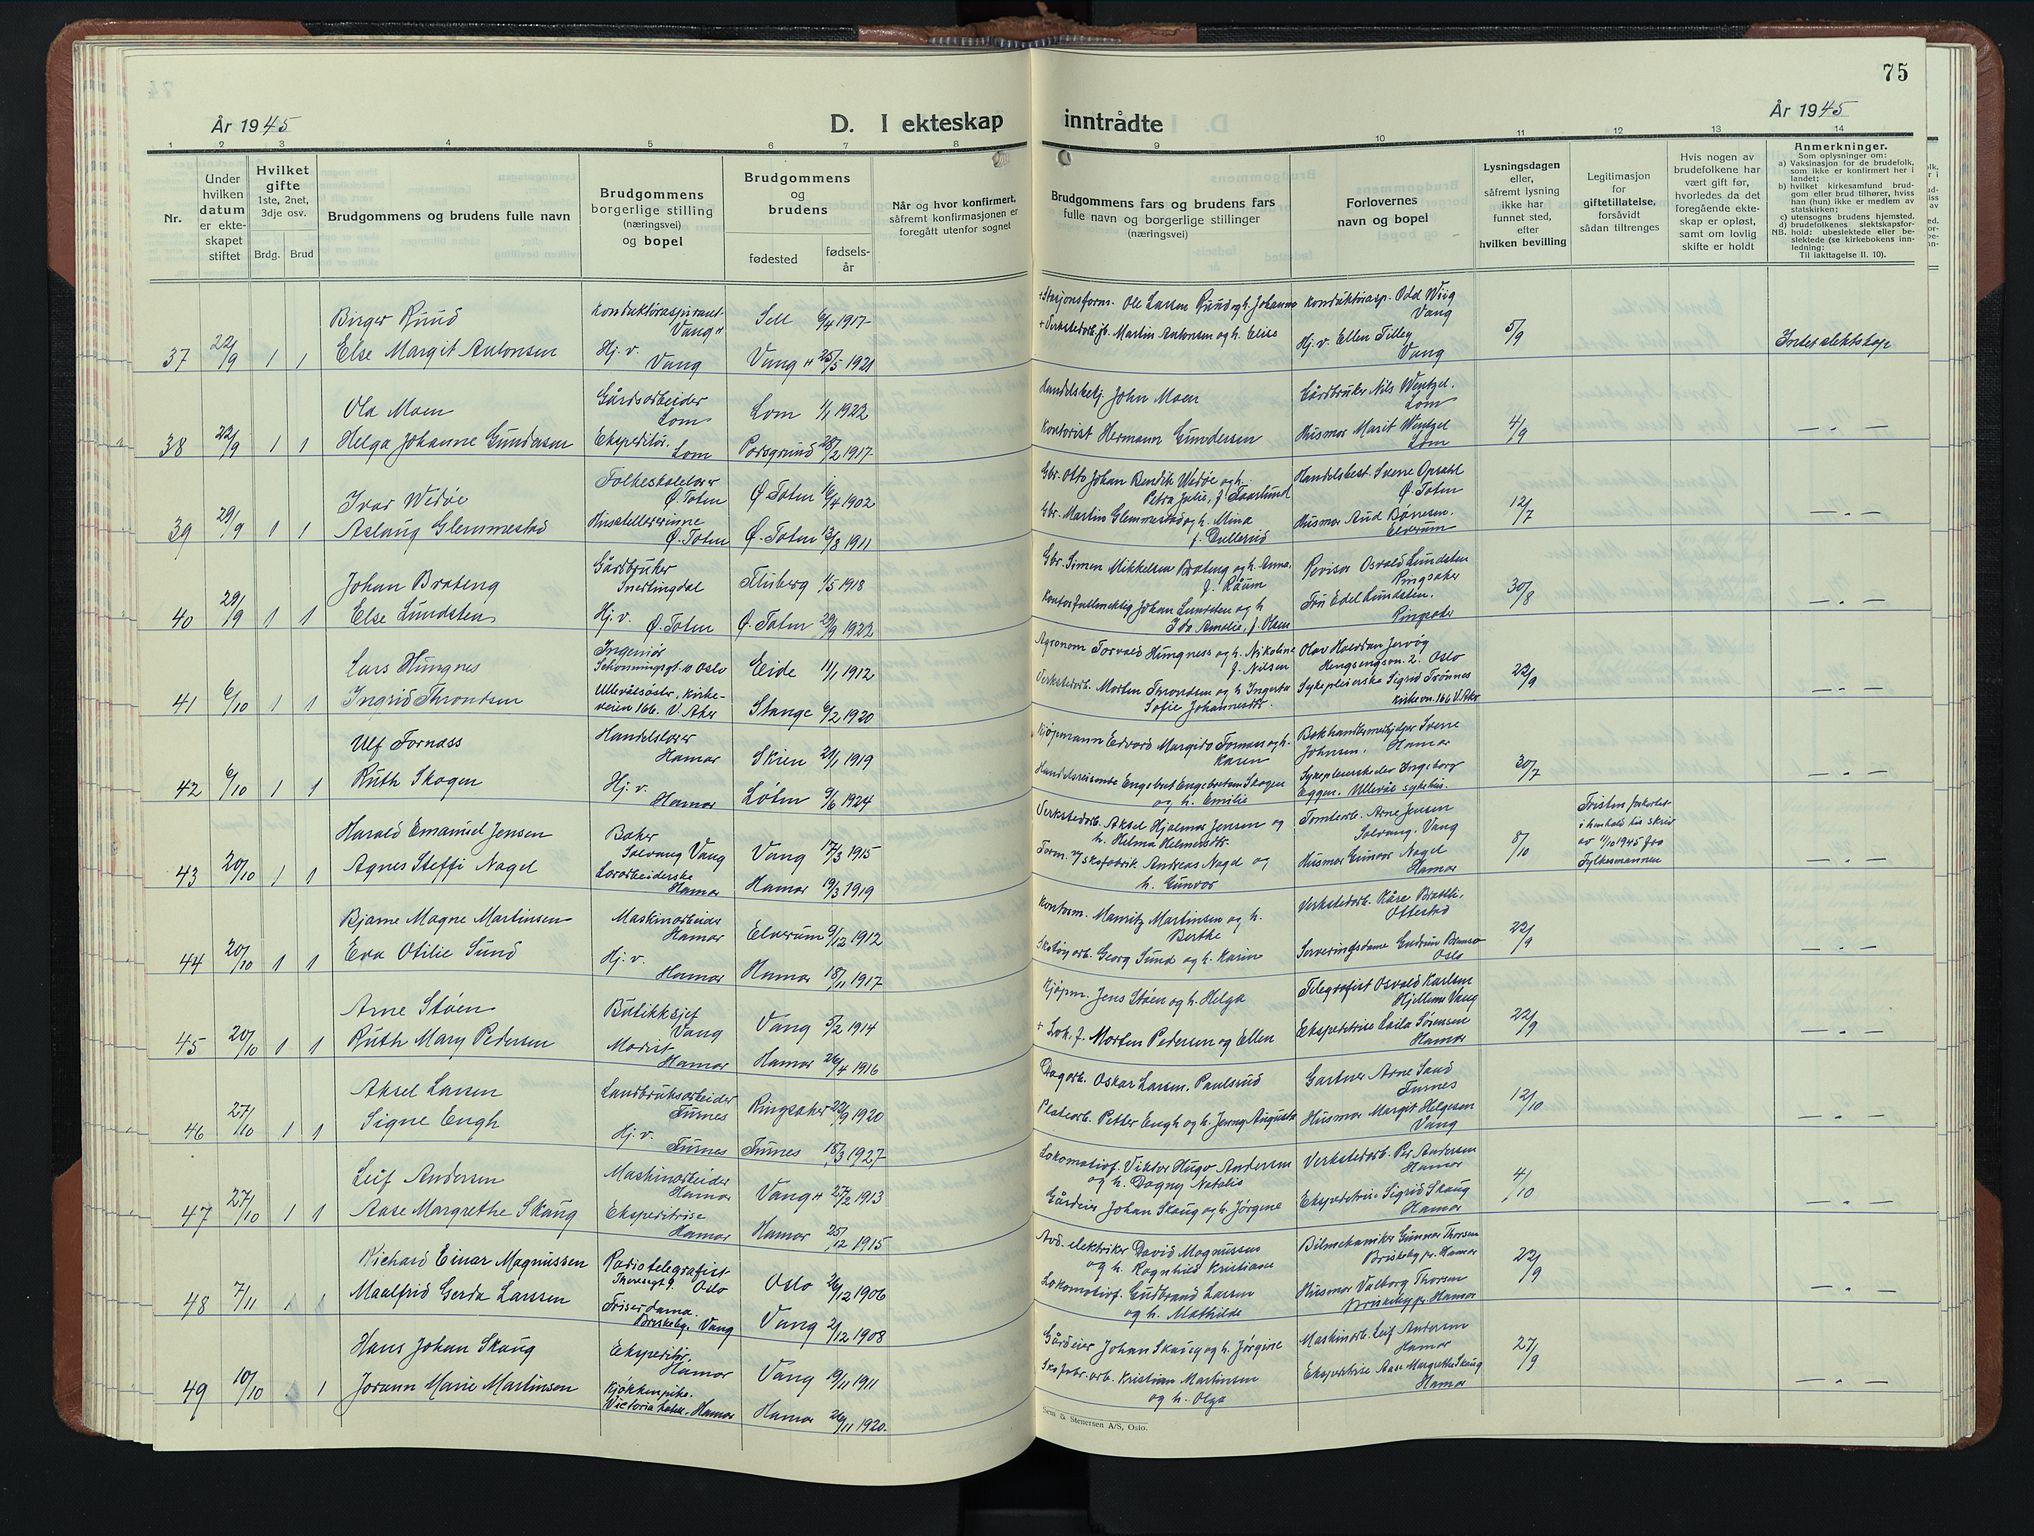 75
År 1945
D. I ekteskap inntrådte
År 1945
1 2 3 4 5 6 7 8 9 10 11 12 13 14
Nr.
Under hvilken datum er ekteskapet stiftet
Hvilket gifte 1ste, 2net, 3dje osv.
Brdg. Brud
Brudgommens og brudens fulle navn
Brudgommens borgerlige stilling (næringsvei) og bopel
Brudgommens og brudens
fødested
fødselsår
Når og hvor konfirmert, såfremt konfirmasjonen er foregått utenfor sognet
Brudgommens fars og brudens fars fulle navn og borgerlige stillinger (næringsvei)
Forlovernes navn og bopel
Lysningsdagen eller, såfremt lysning ikke har funnet sted, efter hvilken bevilling
Legitimasjon for giftetillatelse, forsåvidt sådan tiltrenges
Hvis nogen av brudefolkene har vært gift før, hvorledes da det foregående ekteskap er opløst, samt om lovlig skifte er holdt
Anmerkninger.
Som oplysninger om:
a) Vaksinasjon for de brudefolk, som ikke er konfirmert her i landet;
b) hvilket kirkesamfund brudgom eller brud tilhører, hviss han (hun) ikke er medlem av statskirken;
c) utensogns brudens hjemsted.
d) brudefolkenes slektskapsforhold: ubeslektede eller beslektede (se kirkebokens innledning:
NB.
Til iakttagelse II. 10).
37 22/9 1 1
Birger Ruud
Konduktøraspirant Vang H
Sell 6/4 1917
+ Stasjonsform. Ole Larsen Ruud og h. Johanne
Konduktørasp. Odd Wiig Vang
5/9
Intet slektskap
Else Margit Antonsen
Hj. v. Vang
Vang H 25/5 1921
+ Verkstedarb. Martin Antonsen og h. Elise
Hj. v. Ellen Tilley Vang
38 22/9 1 1
Ola Moen
Gårdsarbeider Lom
Lom 1/1 1922
Handelsbetj. John Moen
Gårdbruker Nils Wentzel. Lom
4/9
— " —
Helga Johanne Gundersen
Ekspeditør. Lom
Porsgrund 28/2 1917
Kontorist Hermann Gundersen
Husmor Marit Wentzel Lom
39 29/9 1 1
Ivar Wedøe
Folkeskolelærer Ø. Toten
Ø. Toten 16/4 1902
Gbr. Otto Johan Bendik Wedøe og h. Petra Julie, f. Faarlund
Handelsbest. Sverre Opsahl Ø. Toten
12/7
— " —
Aslaug Glemmestad
Husstellærerinne Ø. Toten
Ø. Toten 13/8 1911
Gbr. Martin Glemmestad og h. Mina f. Dullerud
Husmor Aud Bønesen. Elverum
40 29/9 1 1
Johan Brateng
Gårdbruker Snertingdal
Fluberg 1/5 1918
Gbr. Simen Mikkelsen Brateng og h. Anna, f. Råum
Revisor Osvald Lundsten Ringsaker
30/8
— " —
Else Lundsten
Hj. v. Ø. Toten
Ø. Toten 29/9 1922
Kontorfullmektig Johan Lundsten og h Ida Amalie, f. Olsen
Fru Edel Lundsten. Ringsaker
41 6/10 1 1
Lars Hungnes
Ingeniør Schønningsgt. 10 Oslo
Eide 11/1 1912
Agronom Torvald Hungness og h. Nikoline f. Nilsen
Olav Hoerdan Jervøg Hengsengsvn. 2. Oslo
22/9
— " —
Ingrid Throndsen
Ullevålsøster, Kirkeveien 166. V. Aker
Stange 6/2 1920
Verkstedarb. Morten Throndsen og h Ingerta Sofie Johannesdtr.
Sykepleierske Sigrid Trønnes Kirkevn. 166 V. Aker
42 6/10 1 1
Ulf Tornass
Handelslærer Hamar
Skien 21/1 1919
Kjøpmann Edvard Margido Tornass og h. Karen
Bokhandlermedhjelper Sverre Johnsen. Hamar
30/7
— " —
Ruth Skogen
Hj. v. Hamar
Løten 9/6 1924
Handelsreisende Engebret Engebretsen Skogen og h. Emilie
Sykepleierskeelev Ingeborg Eggen. Ullevål sykehus.
43 20/10 1 1
Harald Emanuel Jensen
Baker Solvang Vang
Vang 17/3 1915
Verkstedarb. Aksel Hjalmar Jensen og h. Helma Helmersdtr.
Tomtearb. Arne Jensen Solvang. Vang
8/10
Fristen forkortet i henhold til skriv av 11/10 1945 fra Fylkesmannen
— " —
Agnes Steffi Nagel
Lærarbeiderske Hamar
Hamar 19/3 1919
Form. v/ skofabrik Andreas Nagel og h. Gunvor
Husmor Gunvor Nagel Hamar
44 20/10 1 1
Bjarne Magne Martinsen
Maskinarbeider Hamar
Elverum 9/12 1912
Kontorm. Mauritz Martinsen og h. Berthe
Verkstedarb. Kåre Bratli. Ottestad
22/9
— " —
Eva Otilie Sund
Hj. v. Hamar
Hamar 18/11 1917
Skotøyarb. Georg Sund og h. Karine
Serveringsdame Gudrun Oslo
45 20/10 1 1
Arne Støen
Butikksjef Vang
Vang 5/2 1914
Kjøpm. Jens Støen og h. Helga
Telegrafist Osvald Karlsen Hjellum Vang
22/9
— " —
Ruth Mary Pedersen
Modist Hamar
Hamar 26/4 1916
+ Lok. f. Morten Pedersen og Ellen
Ekspeditrise Laila Sørensen Hamar
46 27/10 1 1
Aksel Larsen
Landbruksarbeider Furnes
Ringsaker 22/9 1920
Dagarb. Oskar Larsen. Paulsrud
Gartner Arne Sand Furnes
12/10
— " —
Signe Engh
Hj. v. Furnes
Furnes 18/3 1927
Platearb. Petter Engh og h. Jenny Augusta
Husmor Margit Helgesen Vang
47 27/10 1 1
Leif Andersen
Maskinarbeider Hamar
Vang H 27/2 1913
Lokomotivf. Viktor Hugo Andersen og h. Dagny Natalia
Verkstedarb. Per Andersen Hamar
4/10
— " —
Aase Margrethe Skaug
Ekspeditrise Hamar
Hamar 25/12 1915
Gårdeier Johan Skaug og h. Jørgine
Ekspeditrise Sigrid Skaug Hamar
48 7/11 1 1
Richard Einar Magnussen
Radiotelegrafist Oslo
Oslo 26/12 1906
Avd. elektriker David Magnussen og h. Ragnhild Kristiane
Bilmekaniker Gunnar Thorsen Briskeby pr. Hamar
22/9
— " —
Maalfrid Gerda Larssen
Friserdama. Briskeby. Vang
Vang 2/12 1908
Lokomotivf. Gudbrand Larssen og h. Mathilde
Husmor Valborg Thorsen Briskeby pr. Hamar
49 10/10 1
Hans Johan Skaug
Ekspeditør Hamar
Vang 19/11 1911
Gårdeier Johan Skaug og h. Jørgine
Maskinarb. Leif Andersen Hamar
27/9
— " —
Jorann Marie Martinsen
Kjøkkenpike. Victoria hotell. Hamar
Hamar 26/11 1920.
Skofabr. arb. Kristian Martinsen og h. Olga
Ekspeditrise Aase Margrethe Skaug Hamar
Sem & Stenersen A/S, Oslo.